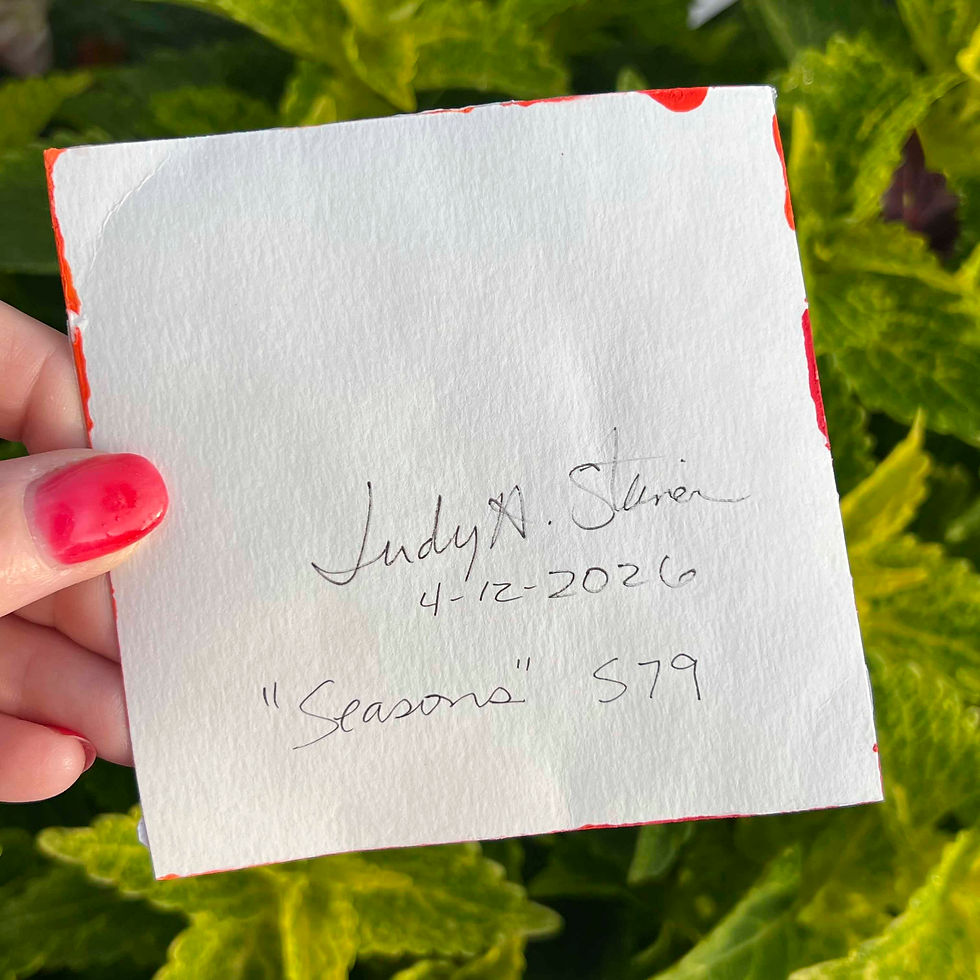 Judy A. Steiner
4-12-2026
"Seasons" S79